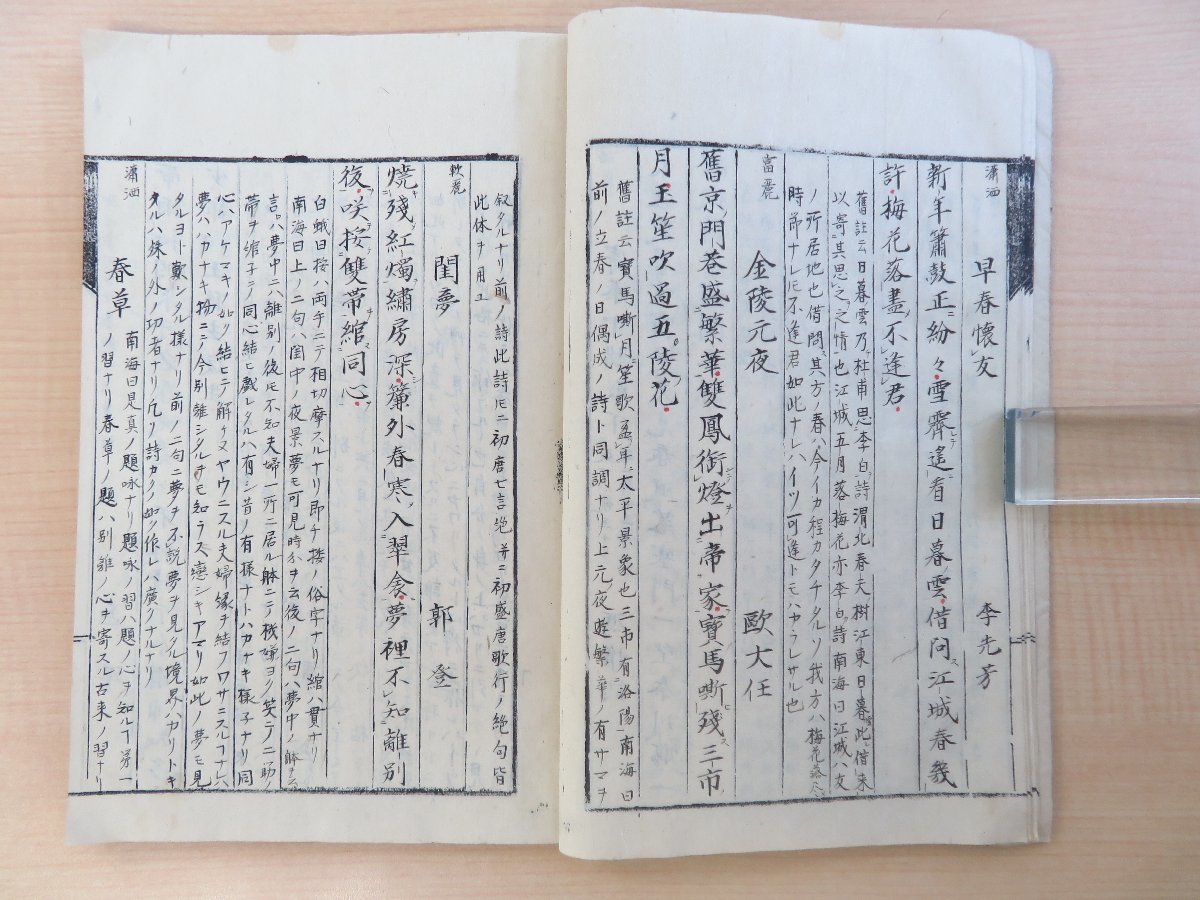 瀟洒
早春懐友　李先芳
新年簫鼓正紛々雪霽遙看日暮雲借問江城春幾
許梅花落盡不逢君
舊註云日暮雲乃杜甫思李白詩渭北春夫樹江東日暮此借来
以寄其思之之情也江城五月落梅花亦李白詩南海曰江城ハ友
ノ所居地也借問其方ノ春ハ今イカ程カタチタルソ我方ハ梅花落尽
時節ナレ𪜈不逢君如此ナレハイツ可逢トモハカラレサル也
富麗
金陵元夜　歐大任
舊京門巷盛繁華雙鳳銜燈出帝家寶馬嘶殘三市
月玉笙吹過五陵花
舊註云寶馬嘶月笙歌
太平景象也三市有洛陽南海曰
前ノ立春ノ日偶成ノ詩ト同調ナリ上元夜遊繁華ノ有サマヲ
叙タルナリ前ノ詩此詩𪜈ニ初唐七言絶并ニ初盛唐歌行ノ絶句皆
此体ヲ用ユ
軟麗
閨夢　郭登
燒殘紅燭繡房深簾外春寒入翠衾夢裡不知離別
後咲挼雙帶綰同心
白蛾曰挼ハ両手ニテ相切摩スルナリ即チ
ノ俗字ナリ綰ハ貫ナリ
南海曰上ノ二句ハ閨中ノ夜景夢モ可見時分ヲ云後ノ二句ハ夢中ノ躰ヲ云
言ハ夢中ニハ離別ノ後𪜈不知夫婦一所ニ居ル躰ニテ機嫌ヨク笑テ
帯ヲ綰テ同心結ヒ戯レタルハ有シ昔ノ有様ナトハカナキ様子ナリ同
心ハアケマキノ如ク結ヒテ解ケヌヤウニスル夫婦縁ヲ結フワサニスルナレハ
夢ハハカナキ物ニテ今別離シタルヲモ知ラス恋シキアマリ如此ノ夢モ見
タルヨト歎シタル様ナリ前ノ二句ニ夢ヲ不説夢ヲ見タル境界ハカリトキ
タルハ殊ノ外ノ功者ナリ凡ソ詩カクノ如ク作レハ廣クナルナリ
瀟洒
春草
南海曰是真ノ題咏ナリ題咏ノ習ハ題ノ心ヲ知ルヿ第一
ノ習ナリ春草ノ題ハ別離ノ心ヲ寄スル古来ノ習ナリ